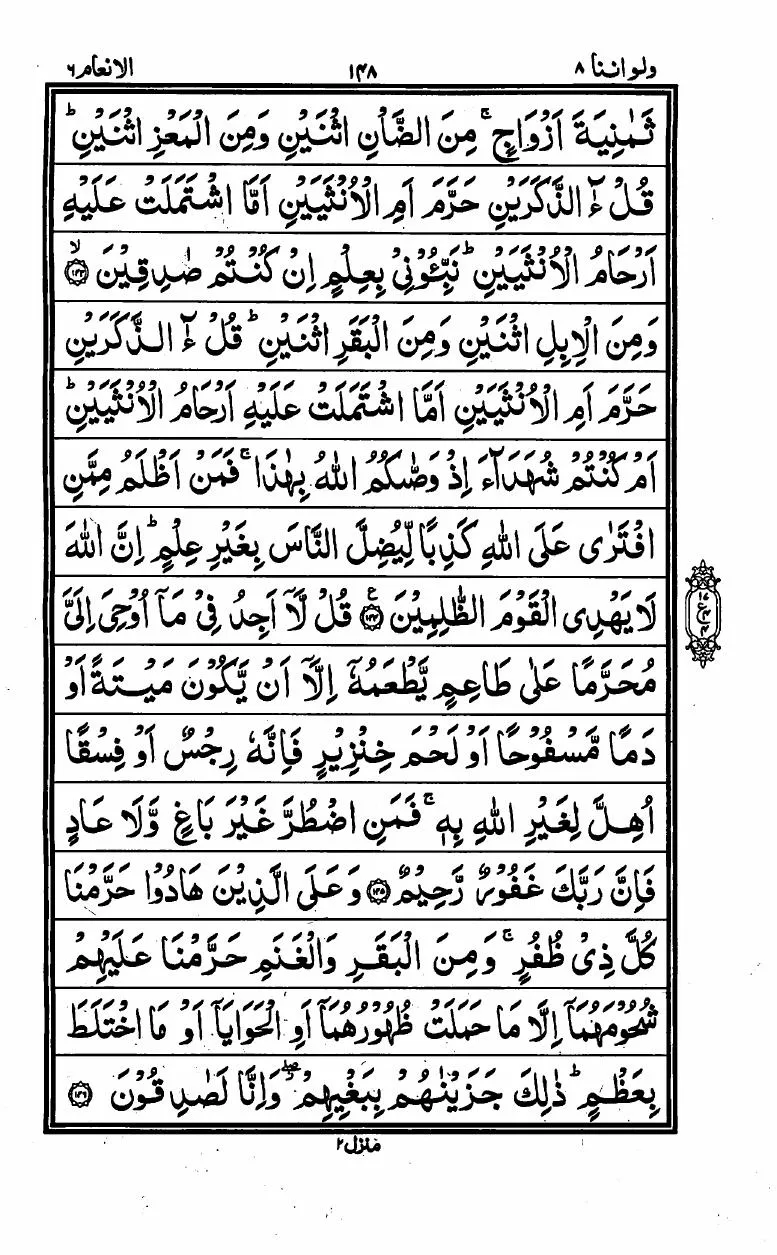 ولواننا ٨ ١٤٨ الانعام ٦
ثَمٰنِيَةَ اَزْوَاجٍ ۚ مِنَ الضَّاْنِ اثْنَيْنِ وَمِنَ الْمَعْزِ اثْنَيْنِ ؕ
قُلْ ءٰٓالذَّكَرَيْنِ حَرَّمَ اَمِ الْاُنْثَيَيْنِ اَمَّا اشْتَمَلَتْ عَلَيْهِ
اَرْحَامُ الْاُنْثَيَيْنِ ؕ نَبِّـُٔوْنِيْ بِعِلْمٍ اِنْ كُنْتُمْ صٰدِقِيْنَ ۙ﴿١٤٣﴾
وَمِنَ الْاِبِلِ اثْنَيْنِ وَمِنَ الْبَقَرِ اثْنَيْنِ ؕ قُلْ ءٰٓالذَّكَرَيْنِ
حَرَّمَ اَمِ الْاُنْثَيَيْنِ اَمَّا اشْتَمَلَتْ عَلَيْهِ اَرْحَامُ الْاُنْثَيَيْنِ ؕ
اَمْ كُنْتُمْ شُهَدَآءَ اِذْ وَصّٰىكُمُ اللّٰهُ بِهٰذَا ۚ فَمَنْ اَظْلَمُ مِمَّنِ
افْتَرٰى عَلَى اللّٰهِ كَذِبًا لِّيُضِلَّ النَّاسَ بِغَيْرِ عِلْمٍ ؕ اِنَّ اللّٰهَ
لَا يَهْدِى الْقَوْمَ الظّٰلِمِيْنَ ﴿١٤٤﴾ۧ قُلْ لَّاۤ اَجِدُ فِيْ مَاۤ اُوْحِيَ اِلَيَّ
١٧ ع ٤ ٤
مُحَرَّمًا عَلٰى طَاعِمٍ يَّطْعَمُهٗۤ اِلَّاۤ اَنْ يَّكُوْنَ مَيْتَةً اَوْ
دَمًا مَّسْفُوْحًا اَوْ لَحْمَ خِنْزِيْرٍ فَاِنَّهٗ رِجْسٌ اَوْ فِسْقًا
اُهِلَّ لِغَيْرِ اللّٰهِ بِهٖ ۚ فَمَنِ اضْطُرَّ غَيْرَ بَاغٍ وَّلَا عَادٍ
فَاِنَّ رَبَّكَ غَفُوْرٌ رَّحِيْمٌ ﴿١٤٥﴾ وَعَلَى الَّذِيْنَ هَادُوْا حَرَّمْنَا
كُلَّ ذِيْ ظُفُرٍ ۚ وَمِنَ الْبَقَرِ وَالْغَنَمِ حَرَّمْنَا عَلَيْهِمْ
شُحُوْمَهُمَاۤ اِلَّا مَا حَمَلَتْ ظُهُوْرُهُمَاۤ اَوِ الْحَوَايَاۤ اَوْ مَا اخْتَلَطَ
بِعَظْمٍ ؕ ذٰلِكَ جَزَيْنٰهُمْ بِبَغْيِهِمْ ۖ وَاِنَّا لَصٰدِقُوْنَ ﴿١٤٦﴾
منزل ٢